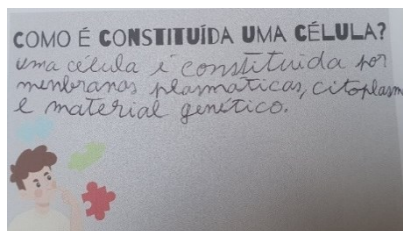 COMO É CONSTITUÍDA UMA CÉLULA?
uma célula é constituida por
menbranas plasmaticas, citoplasm
e material genético.